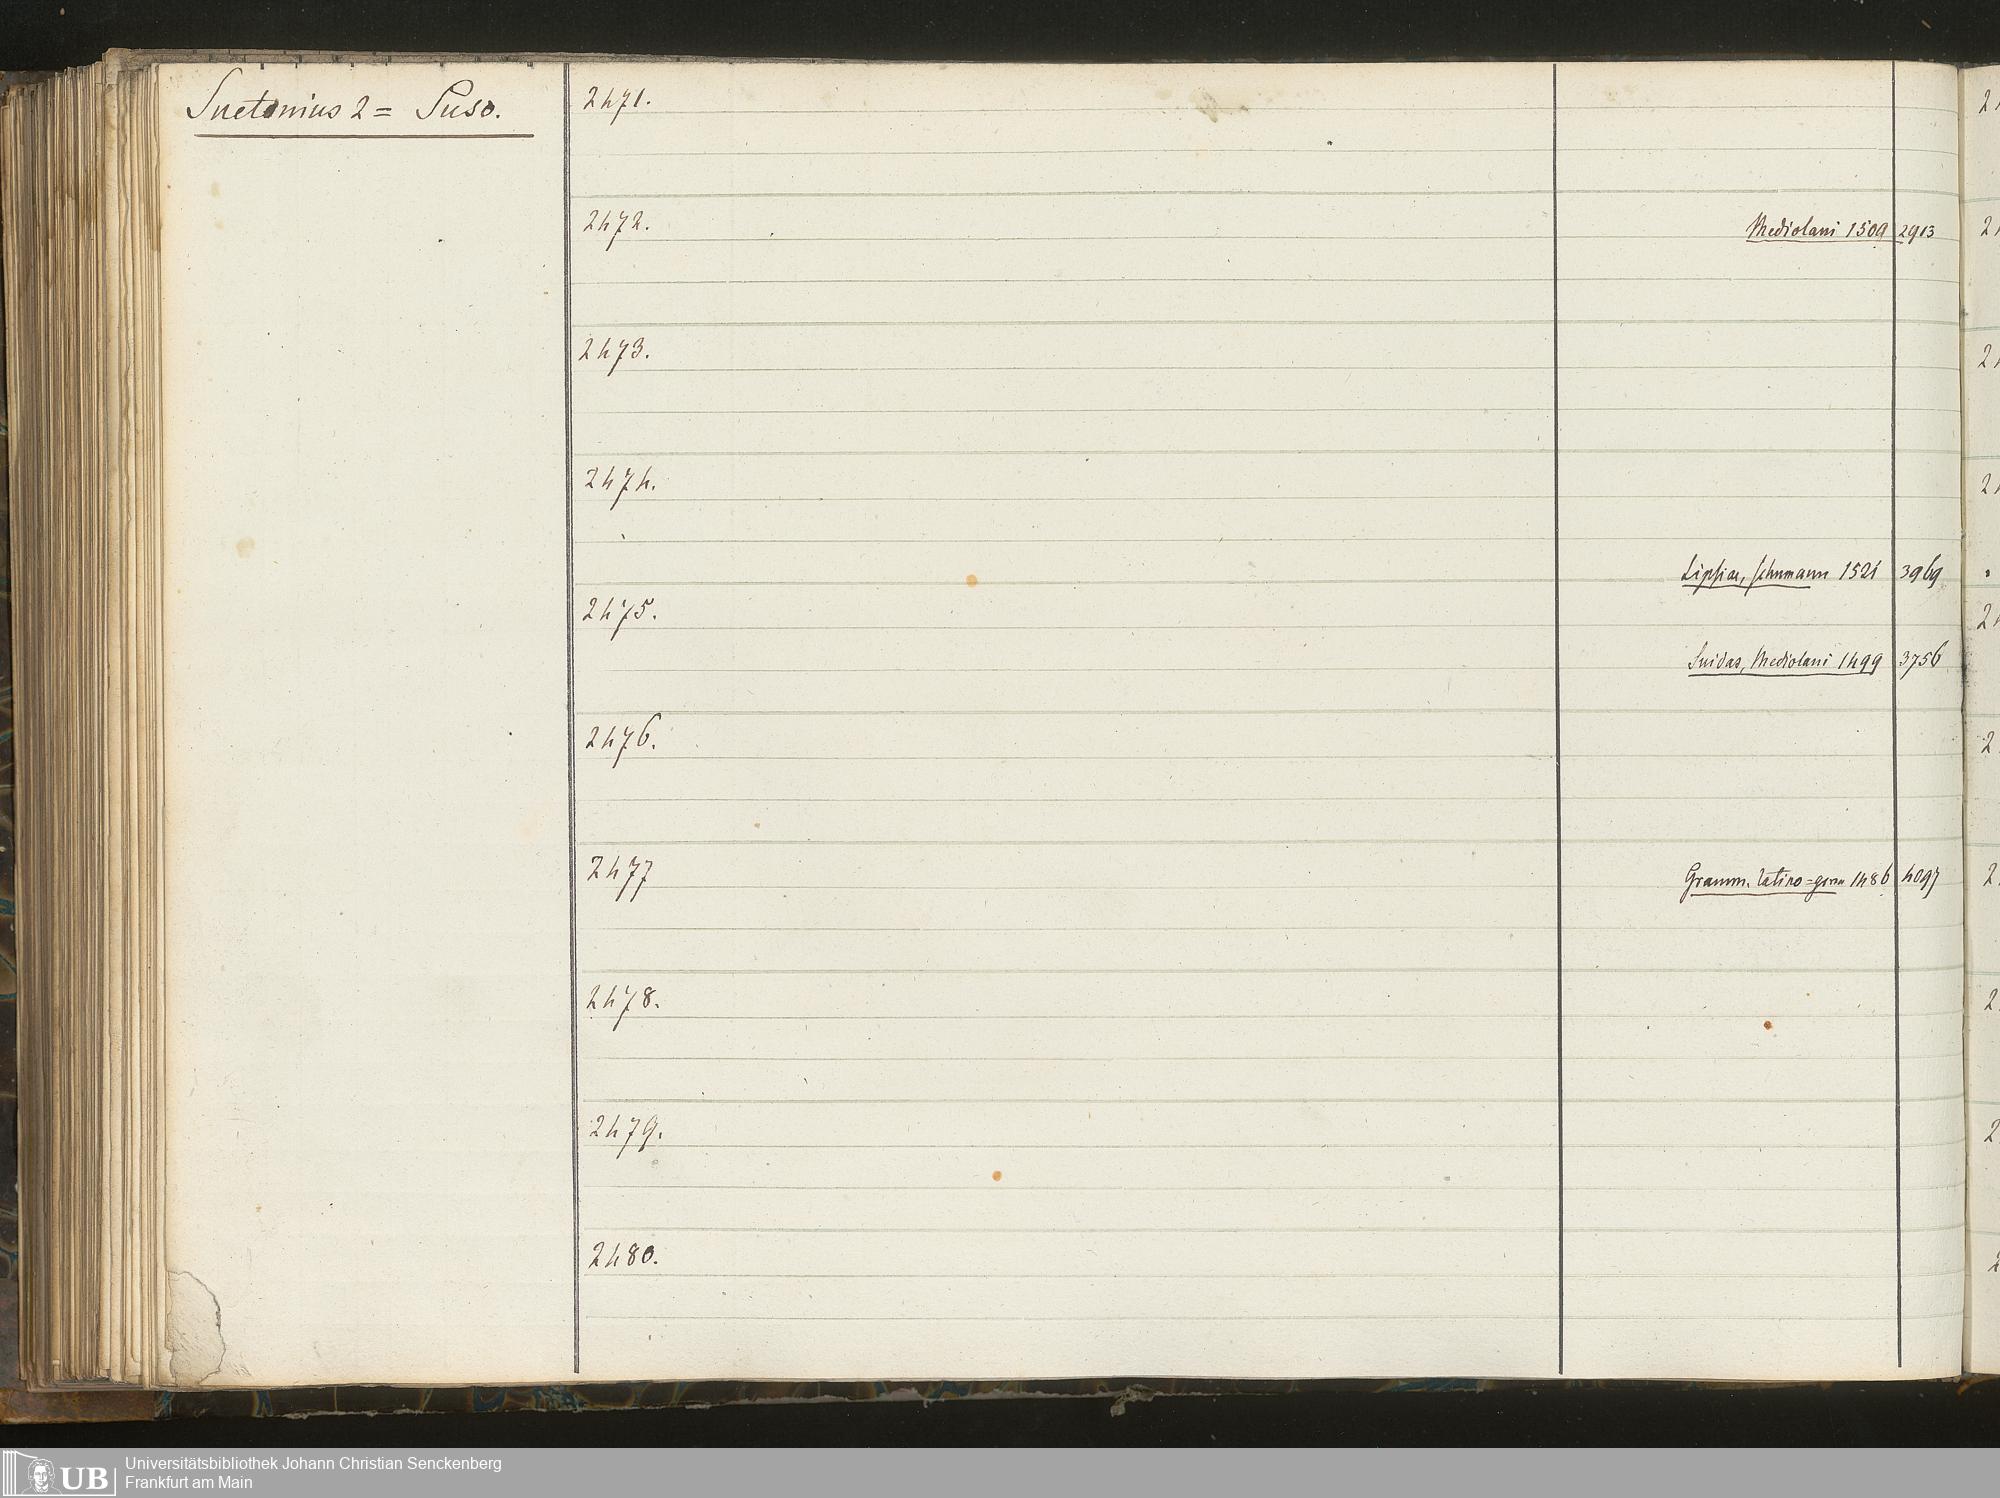 Suetonius 2 = Suso.
2471.
2472.
Mediolani 1509 2913
2473.
2474.
Lipsiae, Schumann 1521 3969
2475.
Suidas, Mediolani 1499 3756
2476.
2477
Gramm. latino=germ 1486 4097
2478.
2479.
2480.
UB
Universitätsbibliothek Johann Christian Senckenberg
Frankfurt am Main